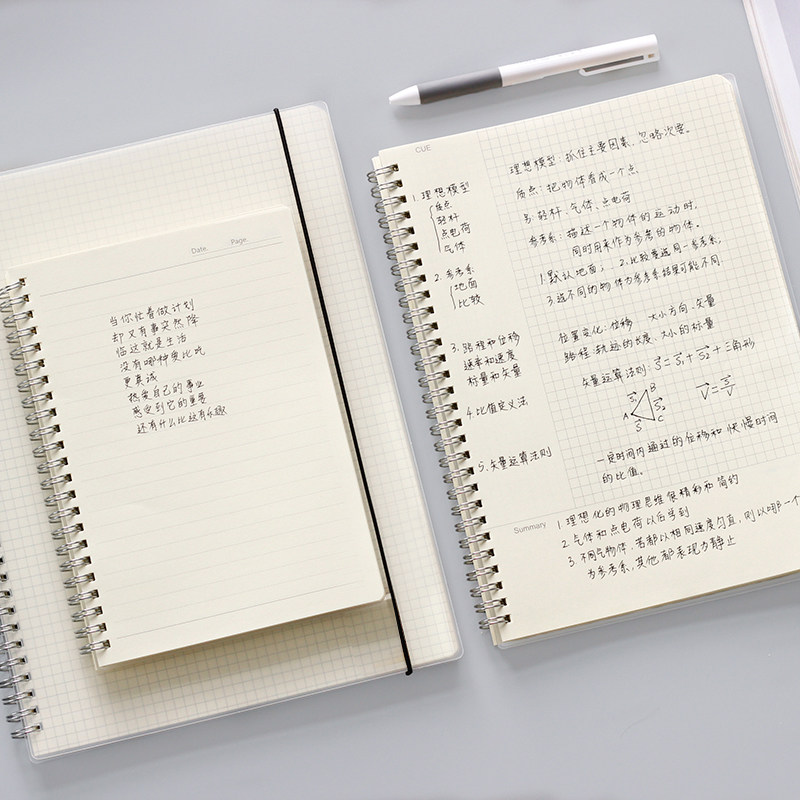 Date. Page.
当你忙着做计划
却又有事突然降
临这就是生活
没有哪种要比吃
更真诚
热爱自己的事业
感受到它的重要
还有什么比这有乐趣
CUE
1. 理想模型
质点
轻杆
点电荷
气体
2. 参考系
地面
比较
3. 路程和位移
速率和速度
标量和矢量
4. 比值定义法
5. 矢量运算法则
理想模型:抓住主要因素,忽略次要。
质点:把物体看成一个点
轻杆、气体、点电荷
参考系:描述一个物体的运动时,
同时用来作为参考的物体。
1. 默认地面; 2. 比较量选同一参考系,
3. 选不同的物体为参考系结果可能不同
位置变化:位移 大小方向、矢量
路程:轨迹的长度、大小的标量
矢量运算法则:S=S₁+S₂+三角形
B
S₁
S₂
A
C
S
V=S/V
一定时间内通过的位移和快慢时间
的比值。
Summary
1. 理想化的物理思维很精彩和简约
2. 气体和点电荷以后学到
3. 不同气物体,若都以相同速度匀直,则以哪一个
为参考系,其他都表现为静止